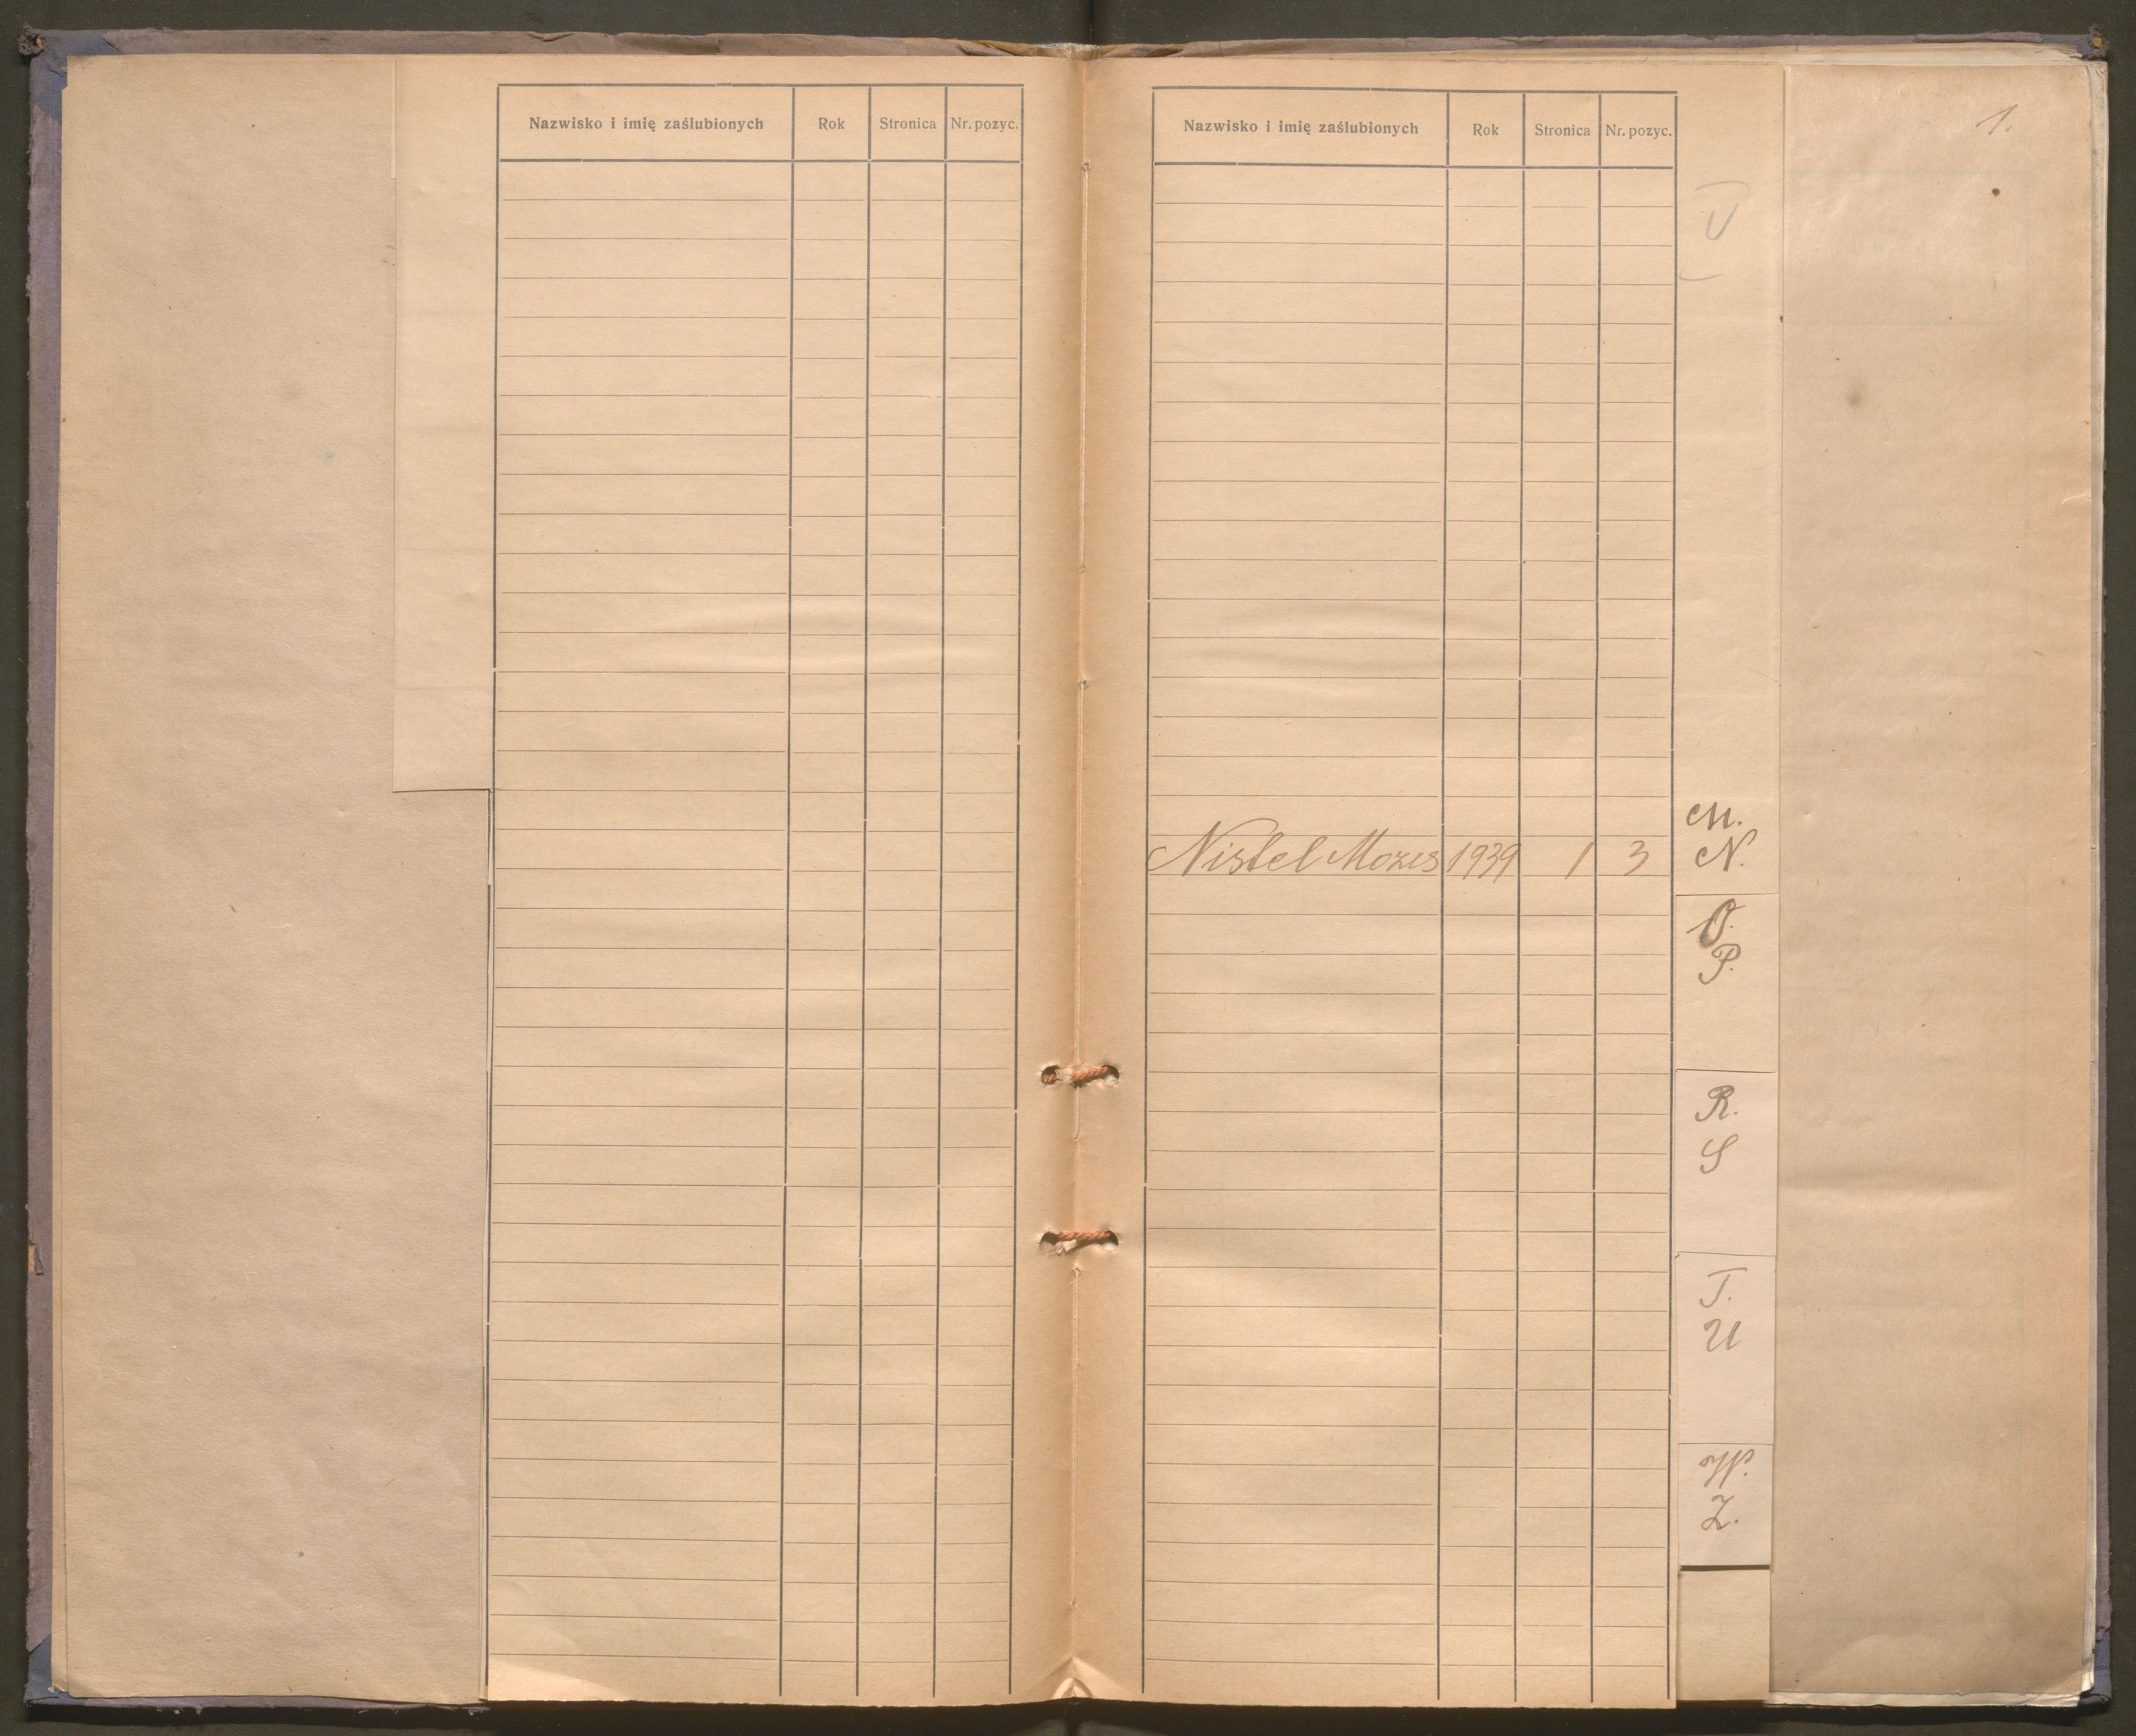 Nazwisko i imię zaślubionych Rok Stronica Nr. pozyc.
Nazwisko i imię zaślubionych Rok Stronica Nr. pozyc.
1.
V
M.
Nistel Mozes 1939 1 3 N.
O.
P.
R.
S
T.
U
W.
Z.